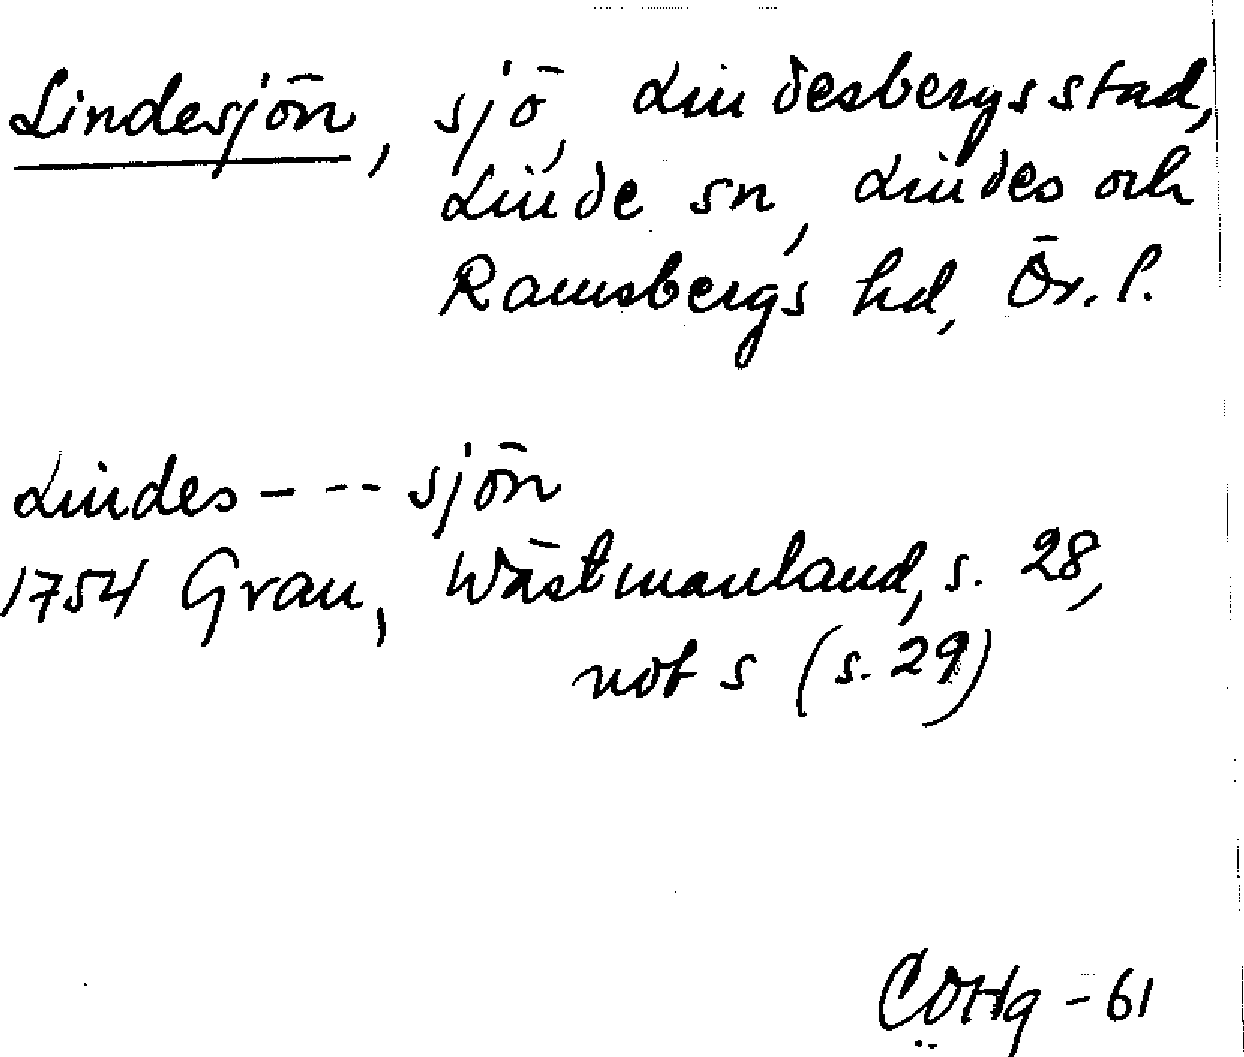 Lindesjön, sjö, Lindesbergs stad,
Linde sn, Lindes och
Ramsbergs hd, Ör. l.
Lindes - - - sjön
1754 Grau, Wästmanland, s. 28,
not s (s. 29)
COHg - 61